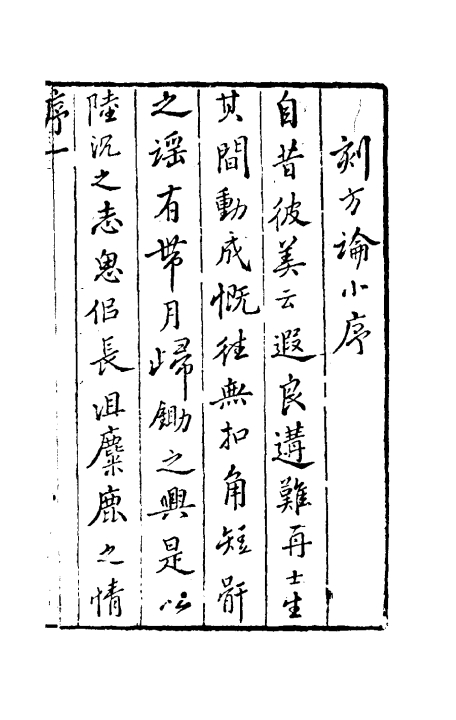 刻方論小序
自昔彼美云遐良遘難再士生
其間動成慨往無扣角短骭
之謡有帶月歸鋤之興是以
陸沉之志鬼侣長沮麋鹿之情
序一